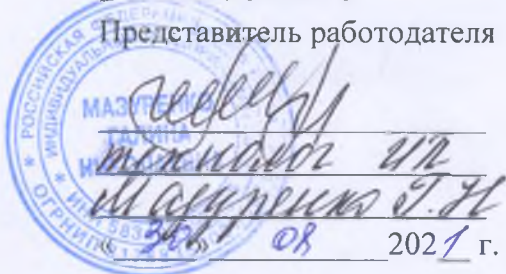 Представитель работодателя
технолог ИП
Мазуренко Г.Н
«30» 08 2021 г.
РОССИЙСКАЯ ФЕДЕРАЦИЯ
ИНДИВИДУАЛЬНЫЙ
МАЗУРЕНКО
ГАЛИНА
ОГРНИП
ИНН 583